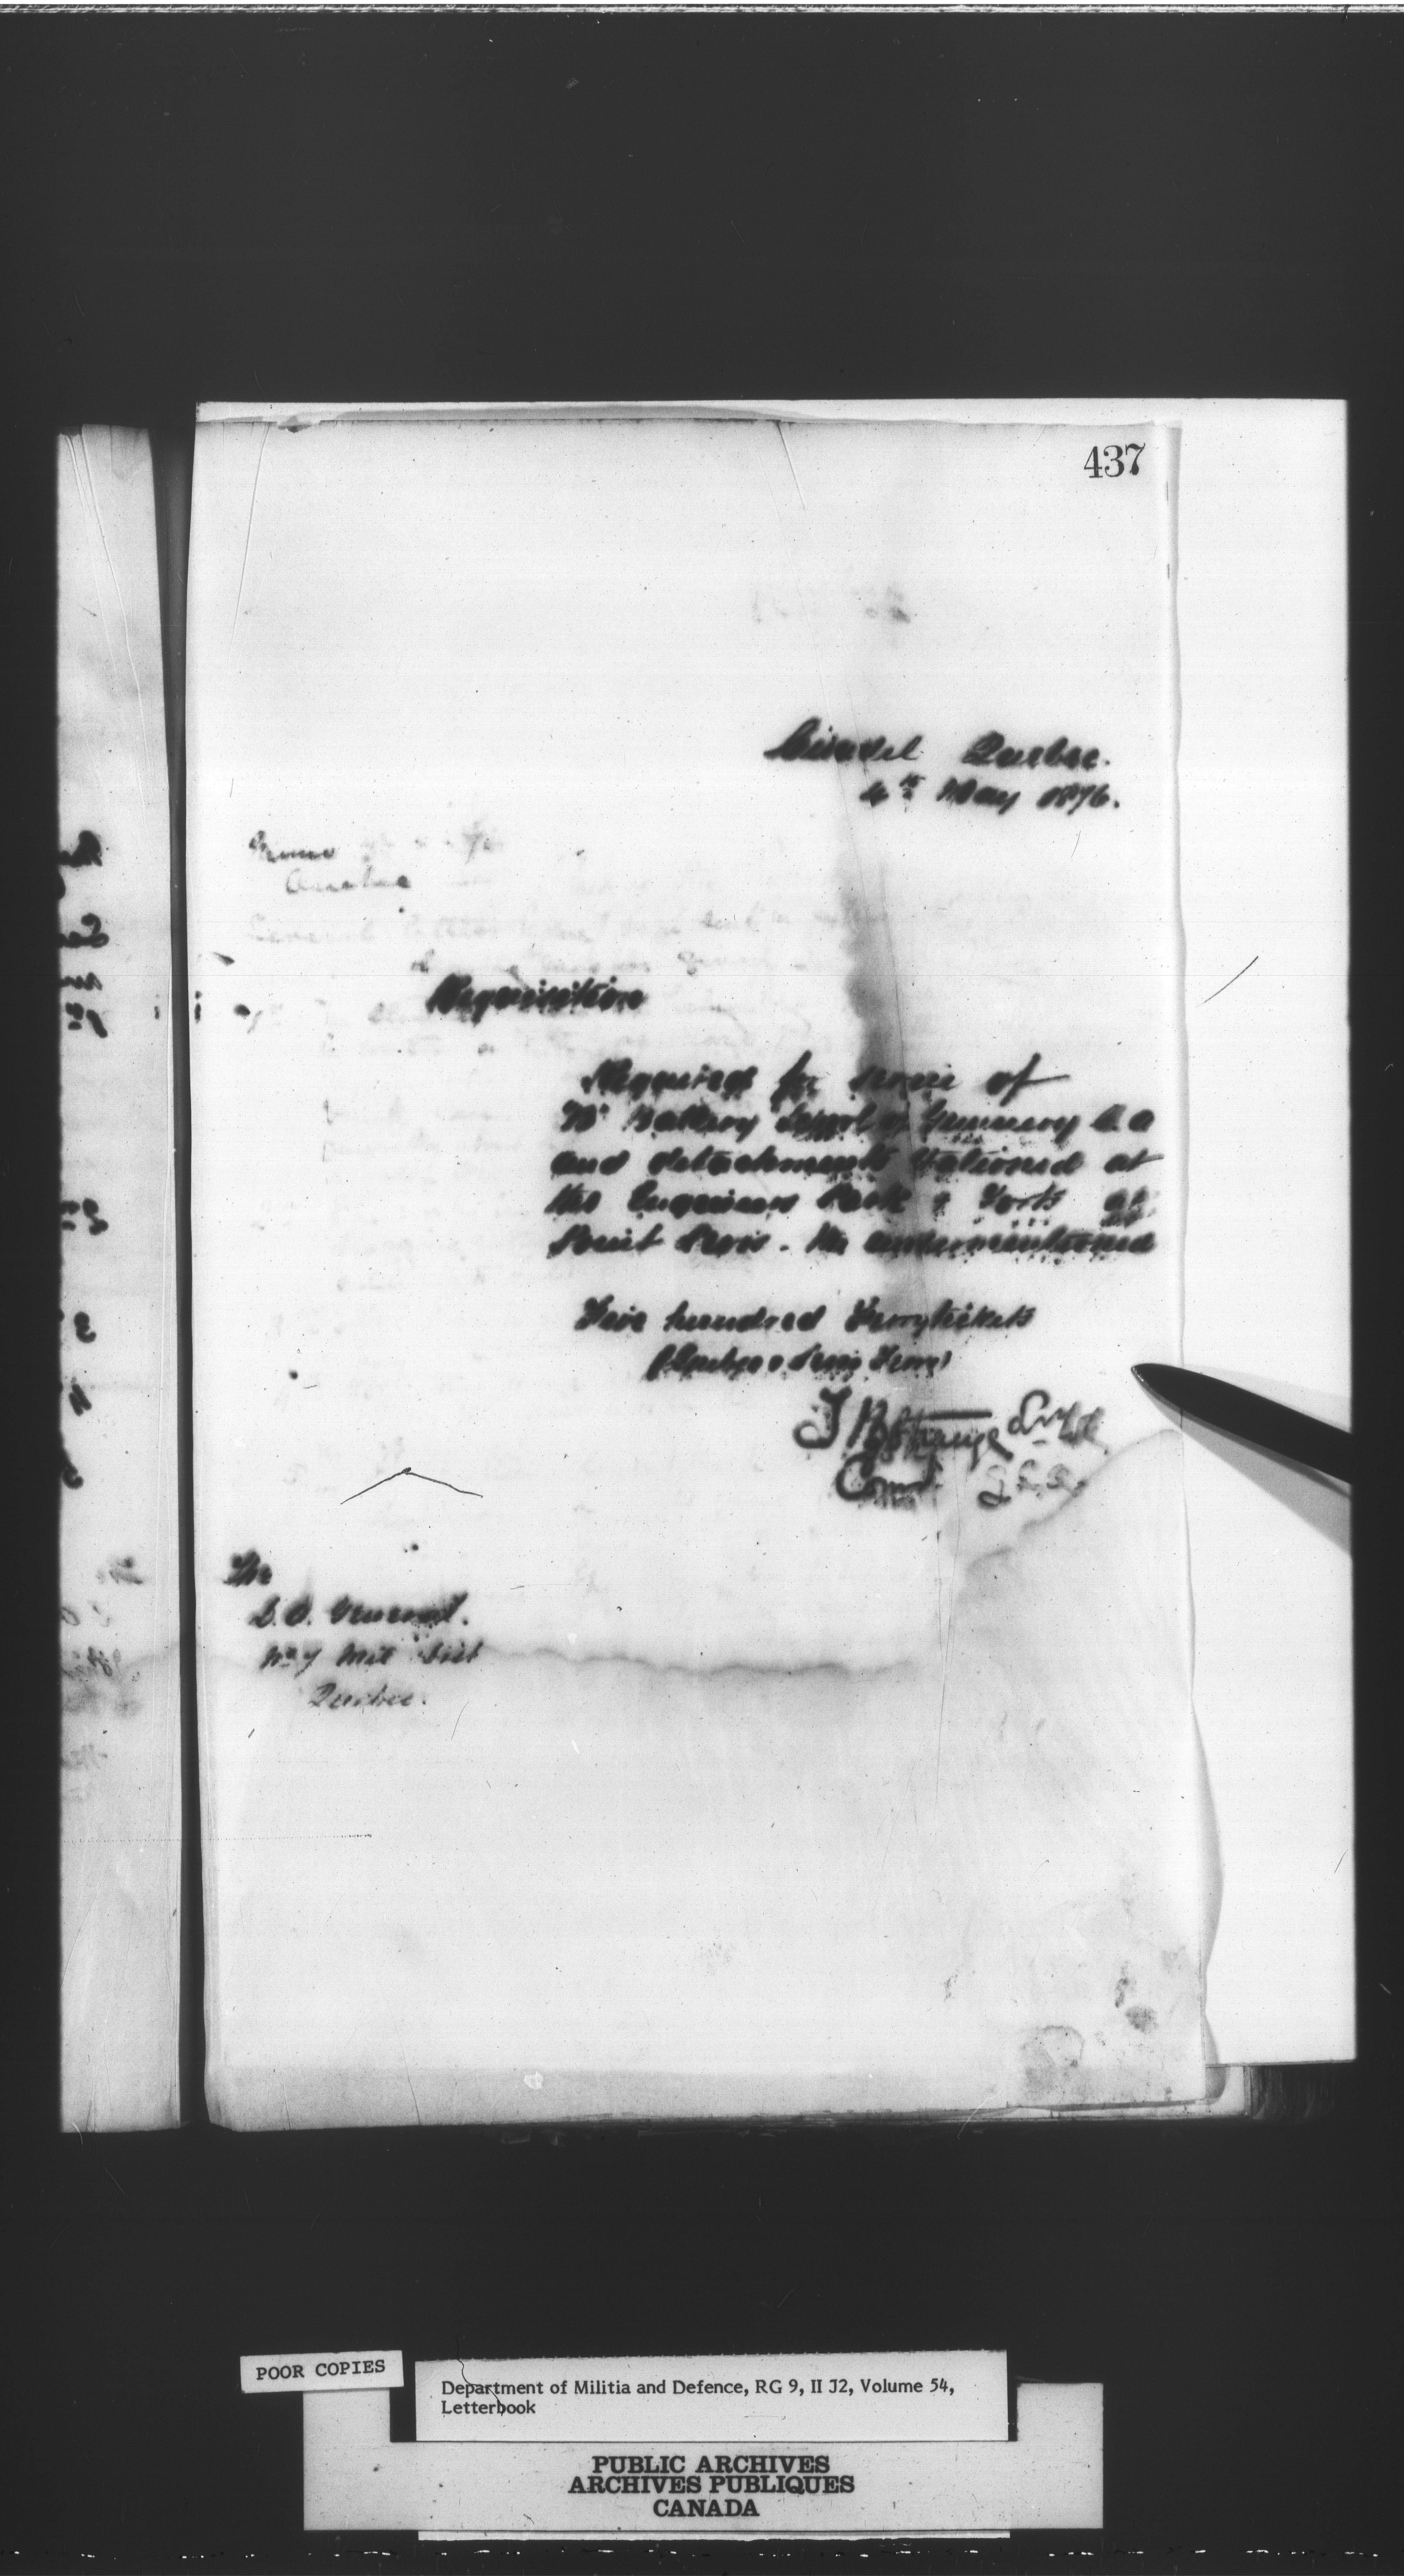 437
Citadel Quebec.
4th May 1876.
Requisition
Required for service of
"B" Battery School of Gunnery C.A
and detachments stationed at
the Engineer Park & Forts at
Point Levis. the undermentioned
Five hundred Ferry tickets
(Quebec & Levis Ferry)
T B Strange Lt Col
Comdt
The
D.O.
No 7 Mil Dist
Quebec.
POOR COPIES
Department of Militia and Defence, RG 9, II J2, Volume 54,
Letterbook
PUBLIC ARCHIVES
ARCHIVES PUBLIQUES
CANADA